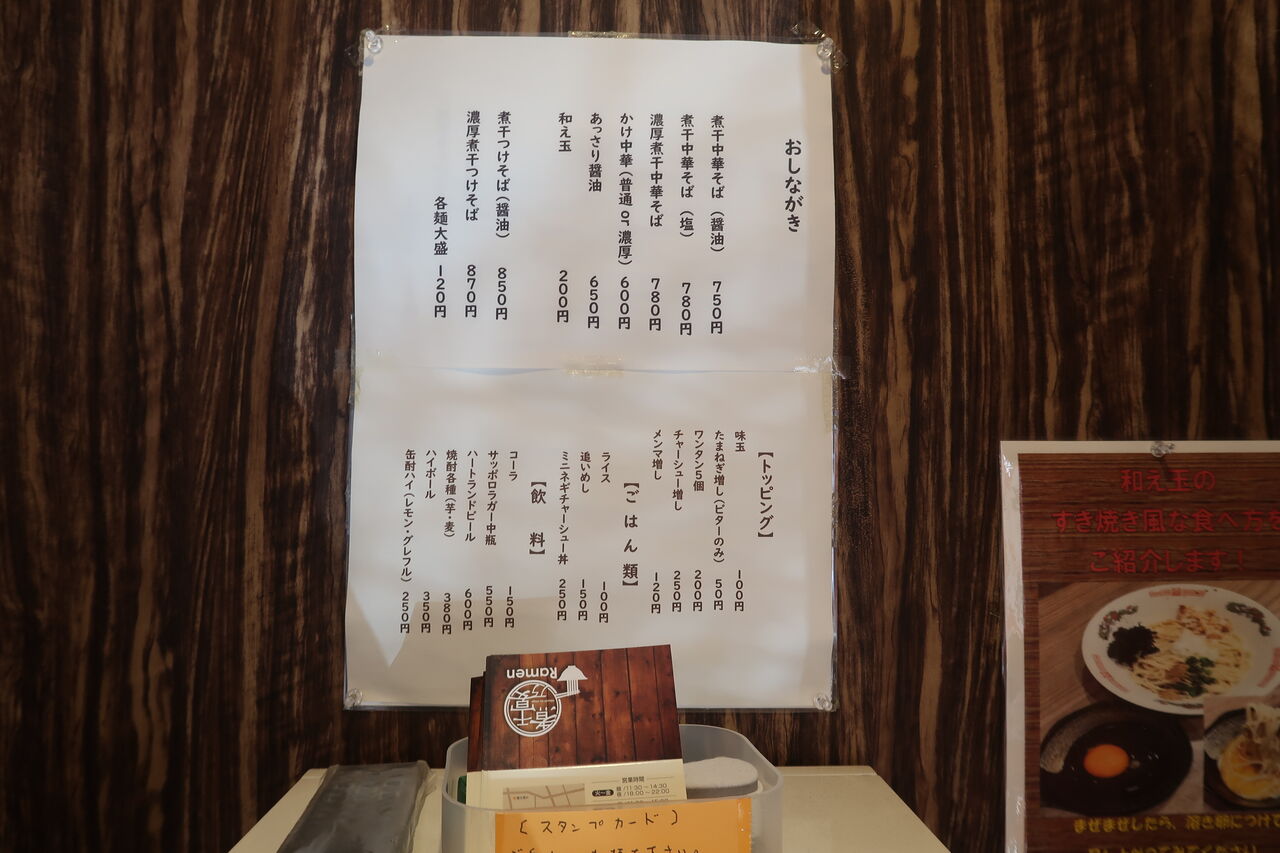 おしながき
煮干中華そば（醤油） 750円
煮干中華そば（塩） 780円
濃厚煮干中華そば 780円
かけ中華（普通 or 濃厚） 600円
あっさり醤油 650円
和え玉 200円
煮干つけそば（醤油） 850円
濃厚煮干つけそば 870円
各麺大盛 120円
【トッピング】
味玉 100円
たまねぎ増し（ビターのみ） 50円
ワンタン5個 200円
チャーシュー増し 250円
メンマ増し 120円
【ごはん類】
ライス 100円
追いめし 150円
ミニネギチャーシュー丼 250円
【飲料】
コーラ 150円
サッポロラガー中瓶 550円
ハートランドビール 600円
焼酎各種（芋・麦） 380円
ハイボール 350円
缶酎ハイ（レモン・グレフル） 250円
和え玉の
すき焼き風な食べ方を
ご紹介します！
まぜまぜしたら、溶き卵につけて
Ramen
営業時間
昼/11:30～14:30
夜/18:00～22:00
〔スタンプカード〕